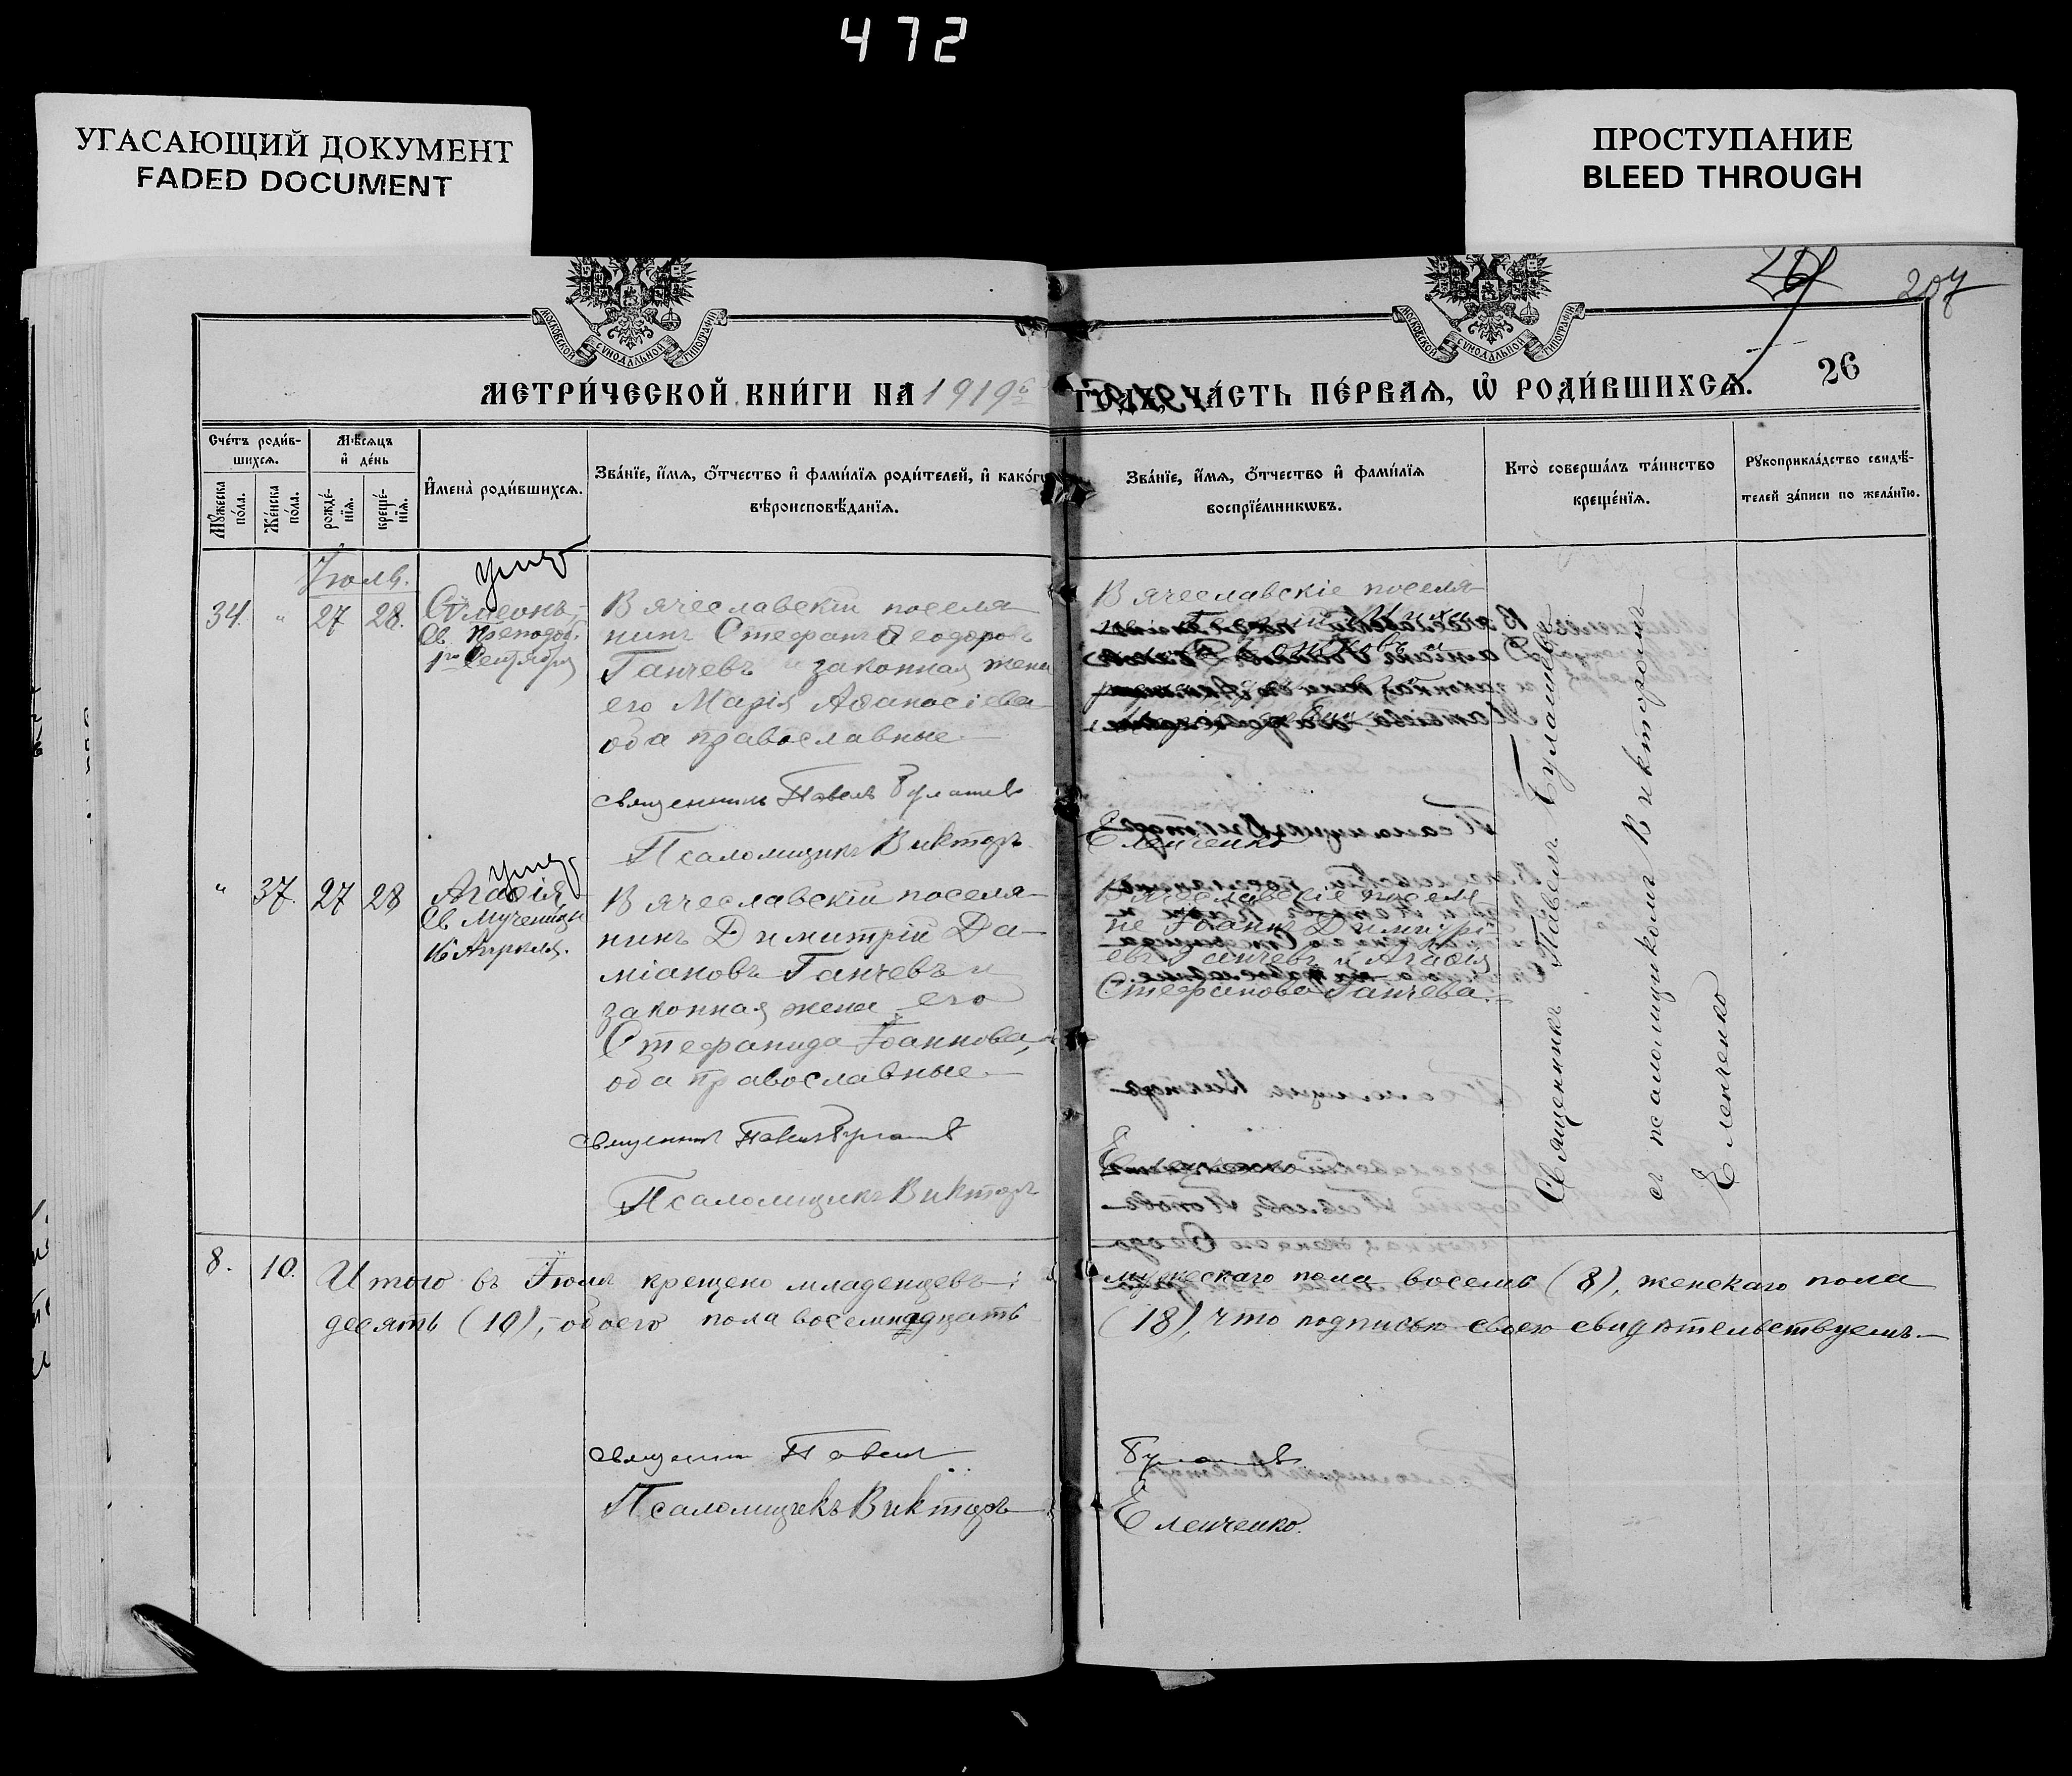 472
УГАСАЮЩИЙ ДОКУМЕНТ
FADED DOCUMENT
ПРОСТУПАНИЕ
BLEED THROUGH
207
26
МОСКОВСКОЙ СѴНОДАЛЬНОЙ ТИПОГРАФІИ
МОСКОВСКОЙ СѴНОДАЛЬНОЙ ТИПОГРАФІИ
МЕТРИ́ЧЕСКОЙ КНИ́ГИ НА 1919й
ГОДЪ, ЧА́СТЬ ПЕ́РВАѦ, Ѡ РОДИ́ВШИХСѦ.
Сче́тъ роди́в-
шихсѧ.
Мѣ́сѧцъ
и҆ де́нь
Мꙋ́жеска
по́ла.
Же́нска
по́ла.
рожде́-
нїѧ.
креще́-
нїѧ.
И҆мена̀ роди́вшихсѧ.
Зва́нїе, и҆́мѧ, ѻ҆́тчество и҆ фами́лїѧ роди́телей, и҆ како́гѡ
вѣроисповѣ́данїѧ.
Зва́нїе, и҆́мѧ, ѻ҆́тчество и҆ фами́лїѧ
воспрїе́мникѡвъ.
Кто̀ соверша́лъ та́инство
креще́нїѧ.
Рꙋкоприкла́дство свидѣ́-
телей за́писи по жела́нїю.
Іюль.
умер
34. " 27 28.
Сѵмеонъ,
Св. Преподоб.
1го Сентября
Вячеславскій поселя-
нинъ Стефанъ Ѳеодоровъ
Ганчевъ и законная жена
его Марія Аѳанасіева
оба православные.
Священникъ Павелъ Булашевъ
Псаломщикъ Викторъ
Вячеславскіе поселя-
Еленченко
умер
" 37. 27 28
Агаѳія
Св. Мученицы
16 Апрѣля.
Вячеславскій поселя-
нинъ Димитрій Да-
міановъ Ганчевъ и
законная жена его
Стефанида Іоаннова,
оба православные.
Священникъ Павелъ Булашевъ
Псаломщикъ Викторъ
Вячеславскіе поселя-
не Іоаннъ Димитрі-
евъ Ганчевъ и Агаѳія
Стефанова Ганчева.
Священникъ Павелъ Булашевъ
съ псаломщикомъ Викторомъ
Еленченко
8. 10.
Итого въ Іюлѣ крещено младенцевъ:
мужескаго пола восемь (8), женскаго пола
десять (10), обоего пола восемнадцать
(18), что подписью своею свидѣтельствуемъ.
Священникъ Павелъ
Булашевъ
Псаломщикъ Викторъ
Еленченко.